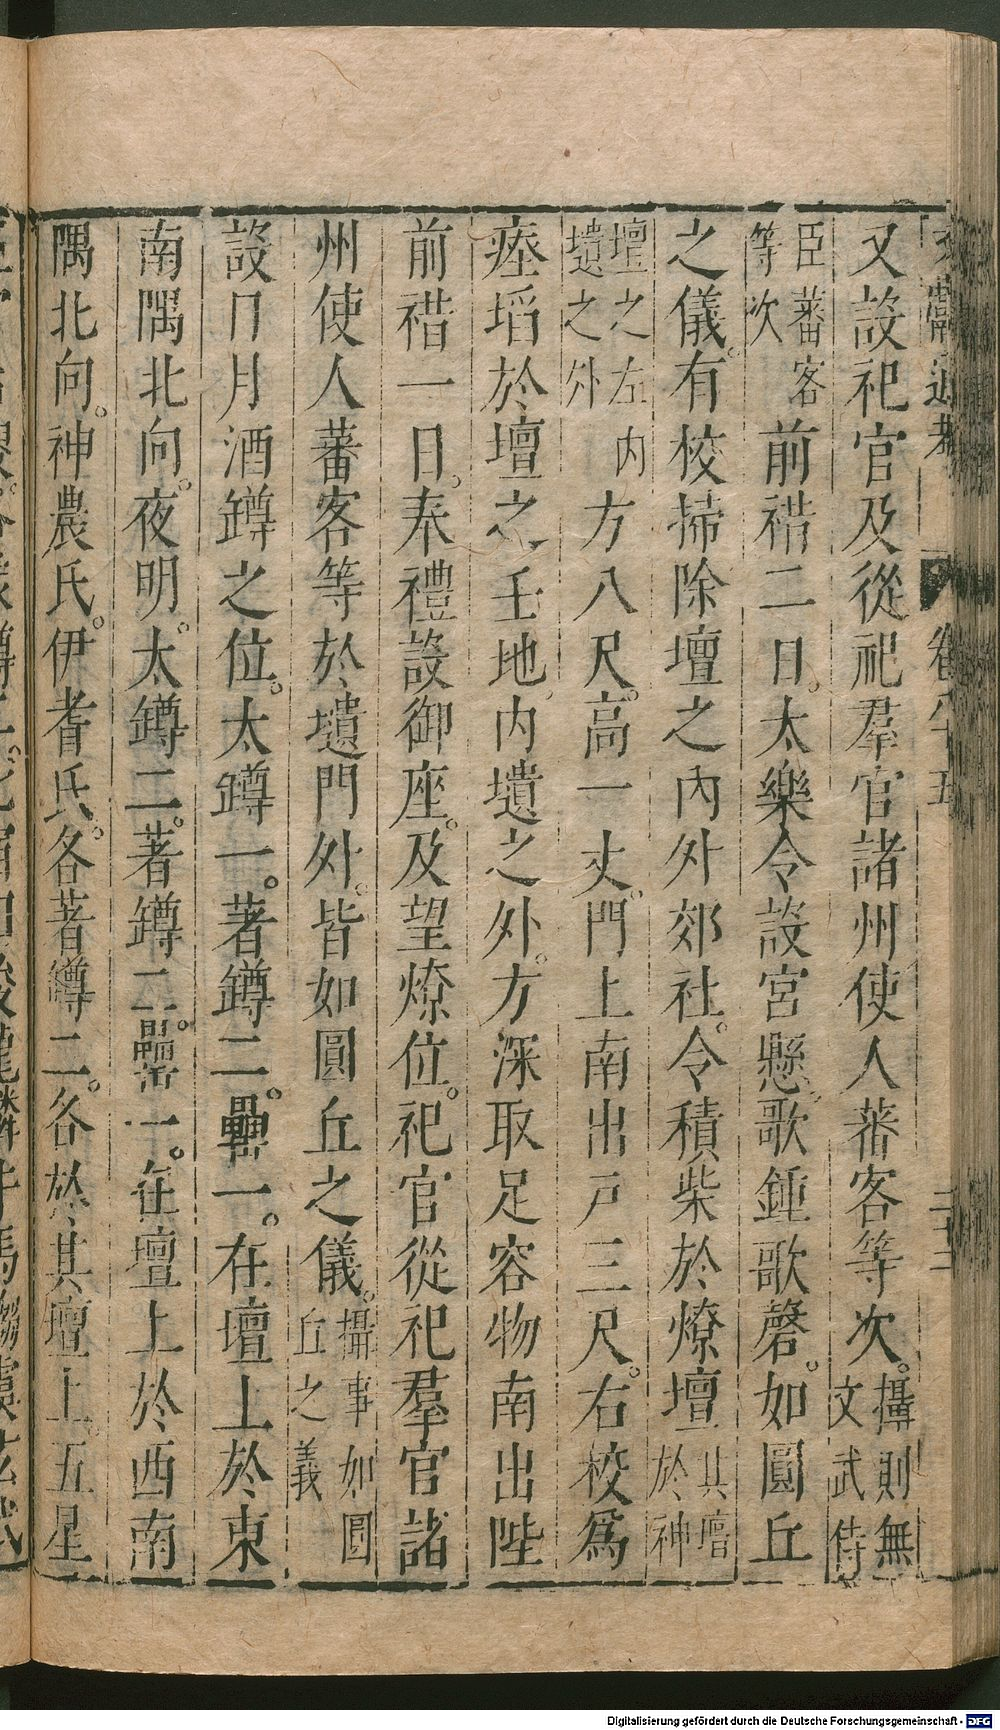 又設祀官及從祀羣官諸州使人蕃客等次。攝則無文武侍
臣蕃客等次前禡二日。太樂令設宮懸。歌鍾歌磬。如圓丘
之儀。有校掃除壇之內外郊社。令積柴於燎壇其壇於神
壇之左内壝之外方八尺。高一丈。門上南出戶三尺。右校為
瘞埳於壇之壬地。内壝之外。方深取足容物南出陛
前禡一日。奉禮設御座。及望燎位。祀官從祀羣官諸
州使人蕃客等於壝門外。皆如圓丘之儀。攝事如圓丘之義
設日月酒罇之位。太罇一。著罇二。罍一。在壇上於東
南隅北向。夜明。太罇二。著罇二。罍一。在壇上於西南
隅北向。神農氏。伊耆氏。各著罇二。各於其壇上。五星
卷八十五
Digitalisierung gefördert durch die Deutsche Forschungsgemeinschaft - DFG